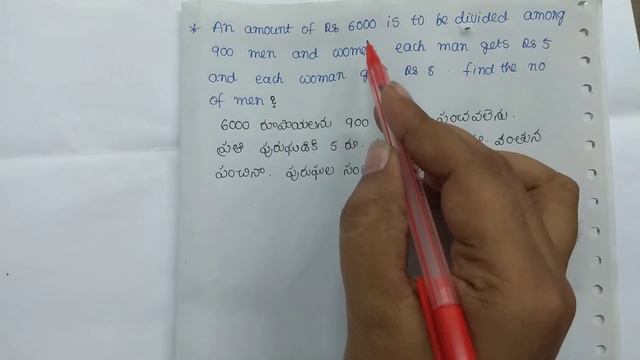 * An amount of Rs 6000 is to be divided among
900 men and women each man gets Rs 5
and each woman Rs 8. find the no
of men?
6000 రూపాయలను 900 పంచవలెను.
ప్రతి పురుషుడికి 5 రూ. వంతున
పంచినా. పురుషుల